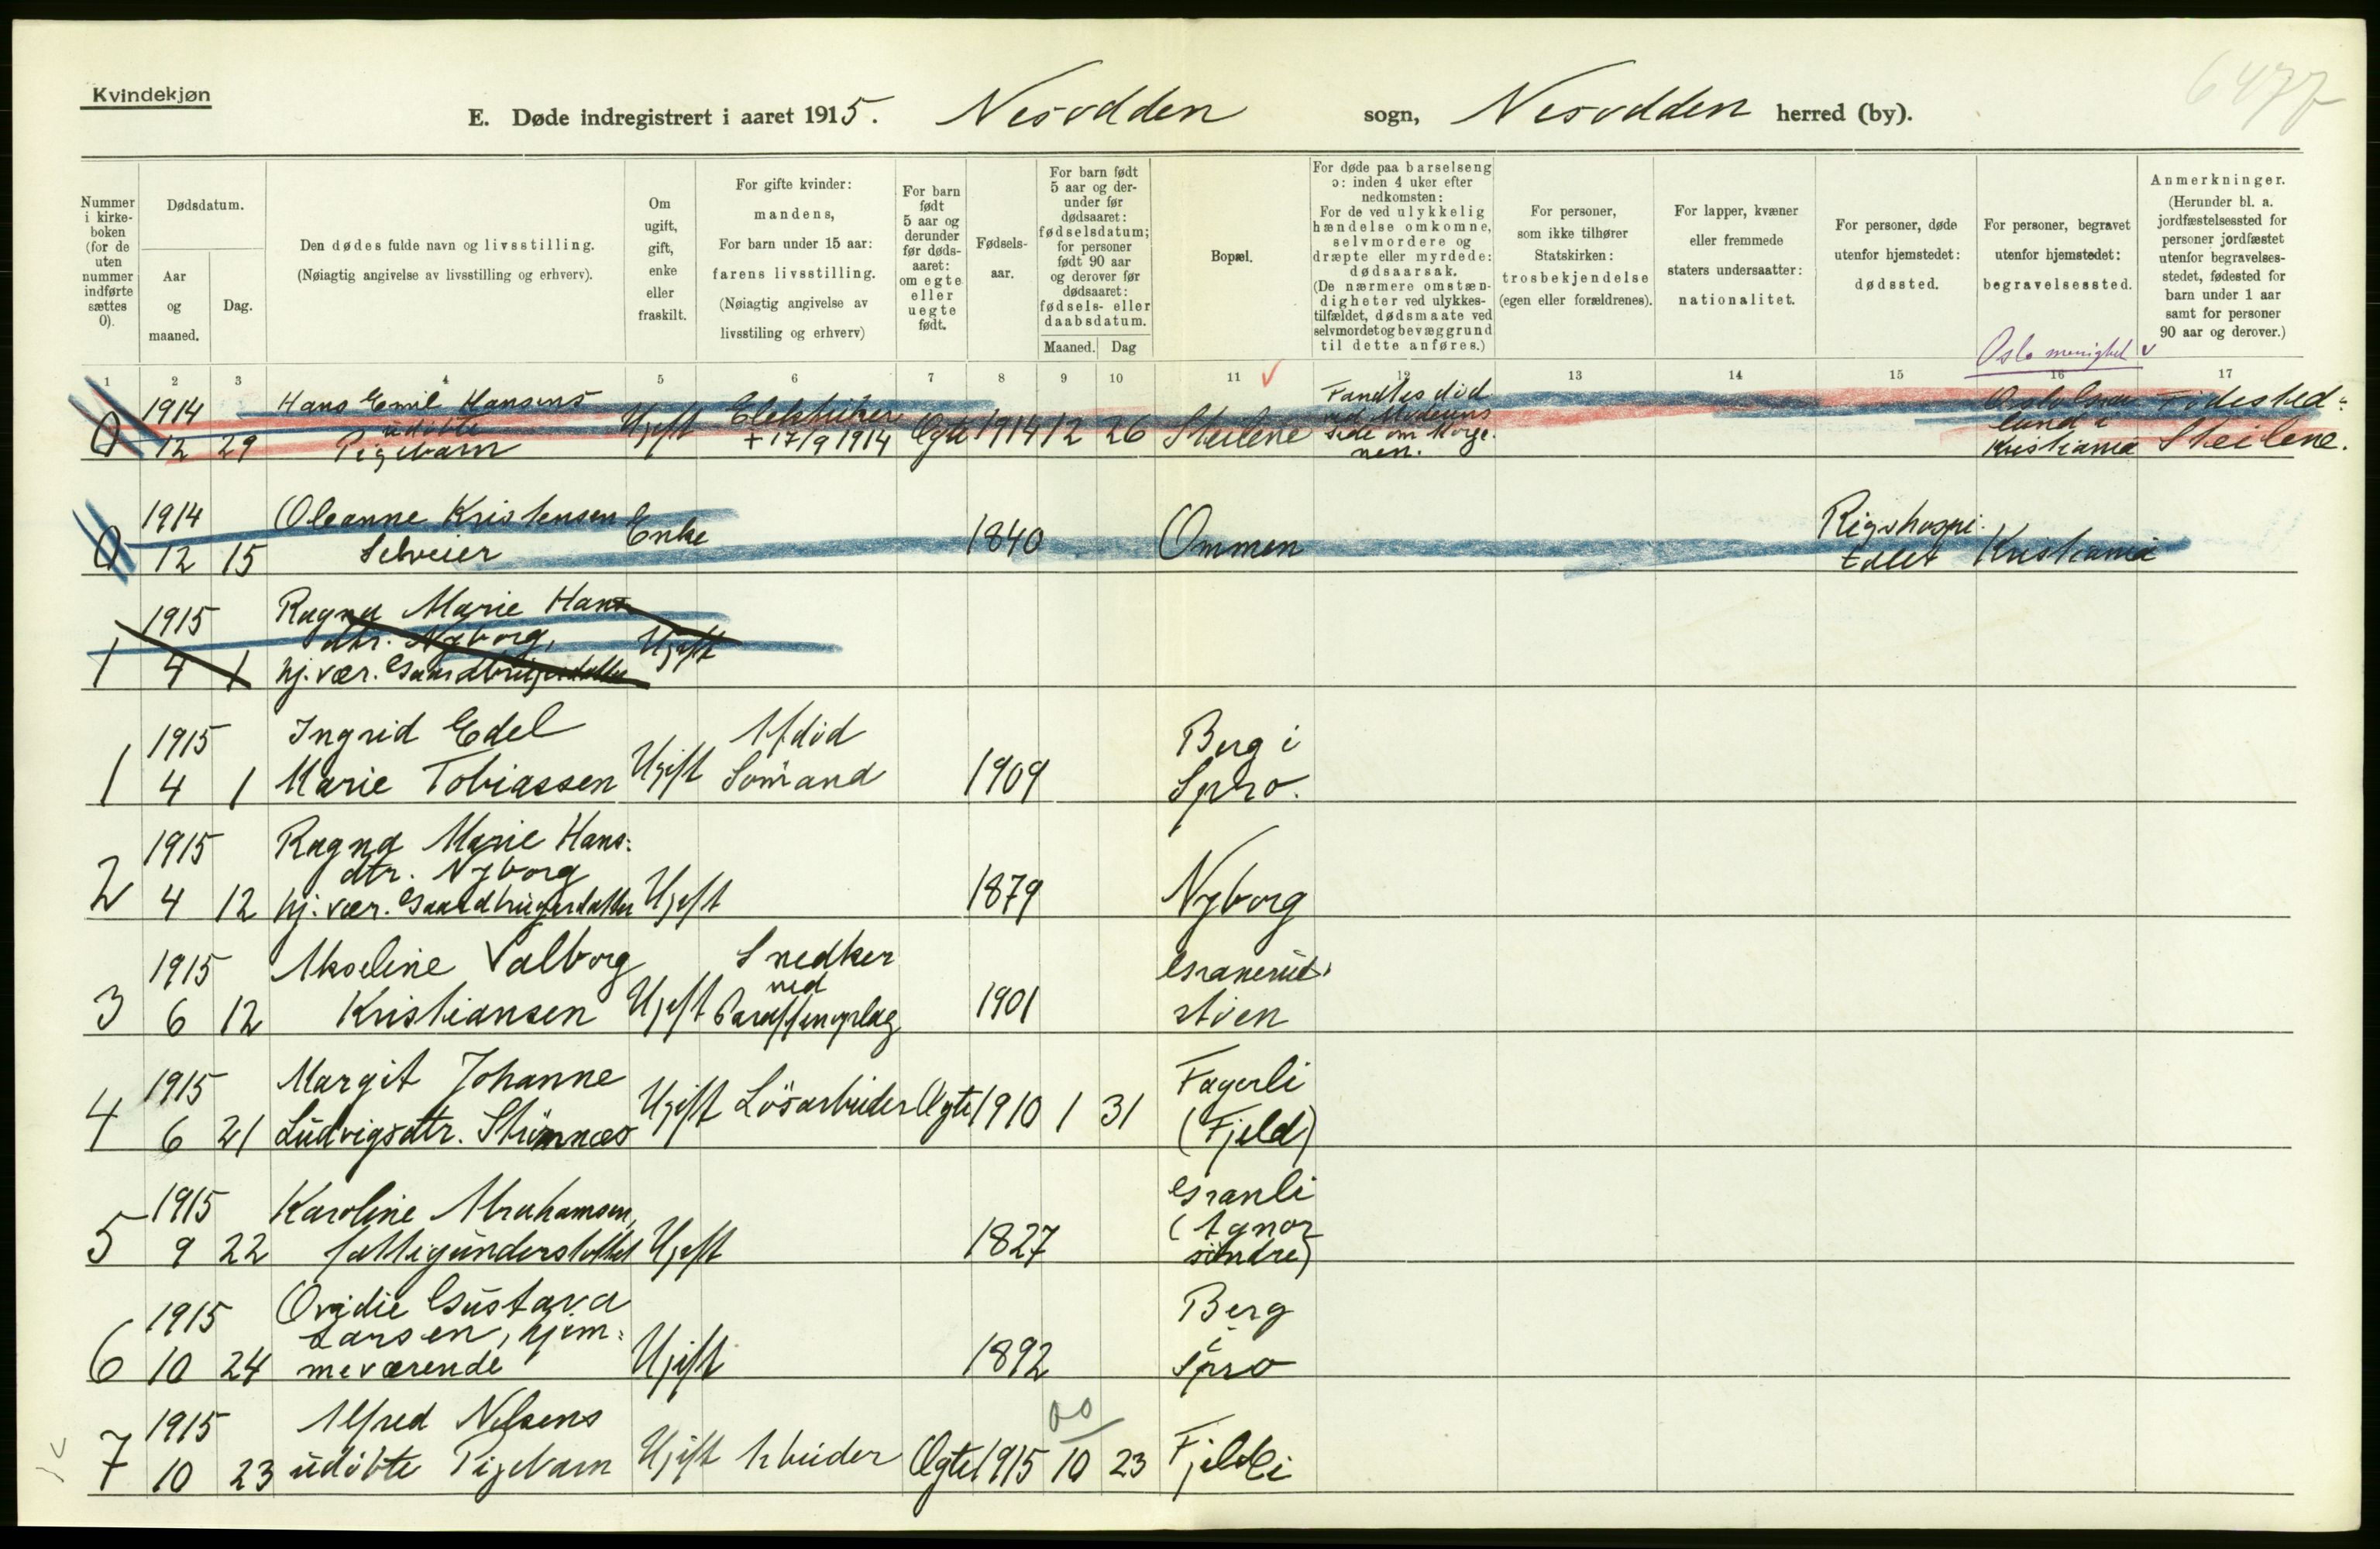 Kvindekjøn
6477
E. Døde indregistrert i aaret 1915. Nesodden sogn, Nesodden herred (by).
Nummer i kirke-boken (for de uten nummer indførte sættes 0).
Dødsdatum.
Aar og maaned.
Dag.
Den dødes fulde navn og livsstilling.
(Nøiagtig angivelse av livsstilling og erhverv).
Om ugift, gift, enke eller fraskilt.
For gifte kvinder:
mandens,
For barn under 15 aar:
farens livsstilling.
(Nøiagtig angivelse av
livsstiling og erhverv)
For barn født 5 aar og derunder før døds-aaret: om egte eller uegte født.
Fødsels-aar.
For barn født 5 aar og der-under før dødsaaret: fødselsdatum; for personer født 90 aar og derover før dødsaaret: fødsels- eller daabsdatum.
Maaned. Dag
Bopæl.
For døde paa barselseng
ɔ: inden 4 uker efter
nedkomsten:
For de ved ulykkelig
hændelse omkomne,
selvmordere og
dræpte eller myrdede:
dødsaarsak.
(De nærmere omstæn-
digheter ved ulykkes-
tilfældet, dødsmaate ved
selvmordet og bevæggrund
til dette anføres.)
For personer,
som ikke tilhører
Statskirken:
trosbekjendelse
(egen eller forældrenes).
For lapper, kvæner
eller fremmede
staters undersaatter:
nationalitet.
For personer, døde
utenfor hjemstedet:
dødssted.
For personer, begravet
utenfor hjemstedet:
begravelsessted.
Anmerkninger.
(Herunder bl. a.
jordfæstelsessted for
personer jordfæstet
utenfor begravelses-
stedet, fødested for
barn under 1 aar
samt for personer
90 aar og derover.)
Oslo menighet v
1 2 3 4 5 6 7 8 9 10 11 12 13 14 15 16 17
0 1914 12 29 Hans Emil Hansens udøbte Pigebarn Ugift Elektriker + 17/9 1914 Ægte 1914 12 26 Steilene Fandtes död ved Moderens Side om Morge-nen. Kristiania Födested: Steilene.
0 1914 12 15 Oleanne Kristensen Selveier Enke 1840 Ommen Rigshospi-talet Kristiania
1 1915 4 1 Ragna Marie Hans-dtr. Nyborg, hj. vær. Gaardbrugerdatter Ugift
1 1915 4 1 Ingrid Edel Marie Tobiassen Ugift Afdöd Sömand 1909 Berg i Spro.
2 1915 4 12 Ragna Marie Hans:dtr. Nyborg hj. vær. Gaardbrugerdatter Ugift 1879 Nyborg
3 1915 6 12 Akseline Valborg Kristiansen Ugift Snedker ved Paraffinoplag 1901 Granerud:stöen
4 1915 6 21 Margit Johanne Ludvigsdtr. Strömnæs Ugift Lösarbeider Ægte 1910 1 31 Fagerli (Fjeld)
5 1915 9 22 Karoline Abrahamsen, fattigunderstöttet Ugift 1827 Granli (Agnor söndre)
6 1915 10 24 Ovidie Gustava Larsen, hjem:meværende Ugift 1892 Berg i Spro
7 1915 10 23 Alfred Nilsens udöbte Pigebarn Ugift Arbeider Ægte 1915 10 23 Fjeldli
00